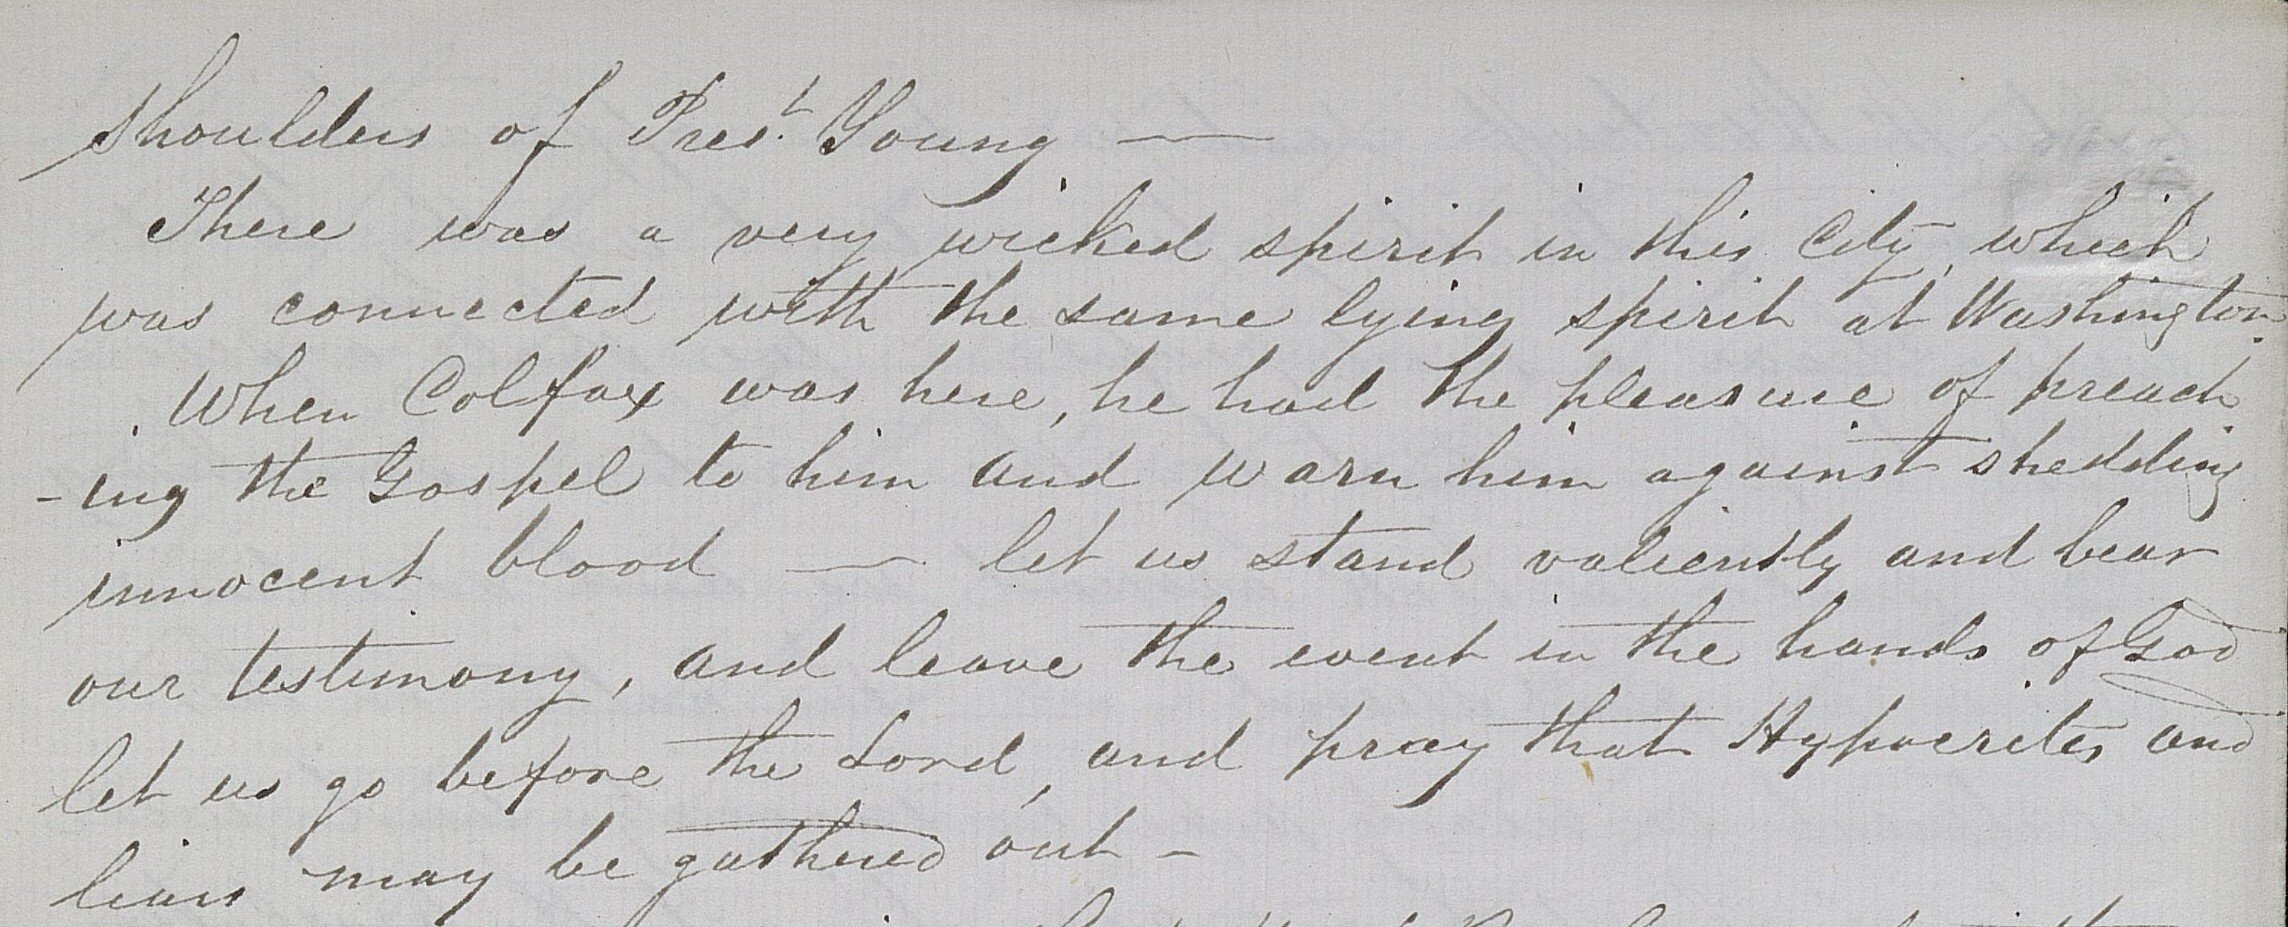 shoulders of Prest. Young —
There was a very wicked spirit in this City, which
was connected with the same lying spirit at Washington.
When Colfax was here, he had the pleasure of preach
-ing the Gospel to him and warn him against shedding
innocent blood — let us stand valiently and bear
our testimony, and leave the event in the hands of God
let us go before the Lord, and pray that Hypocrites and
liars may be gathered out -